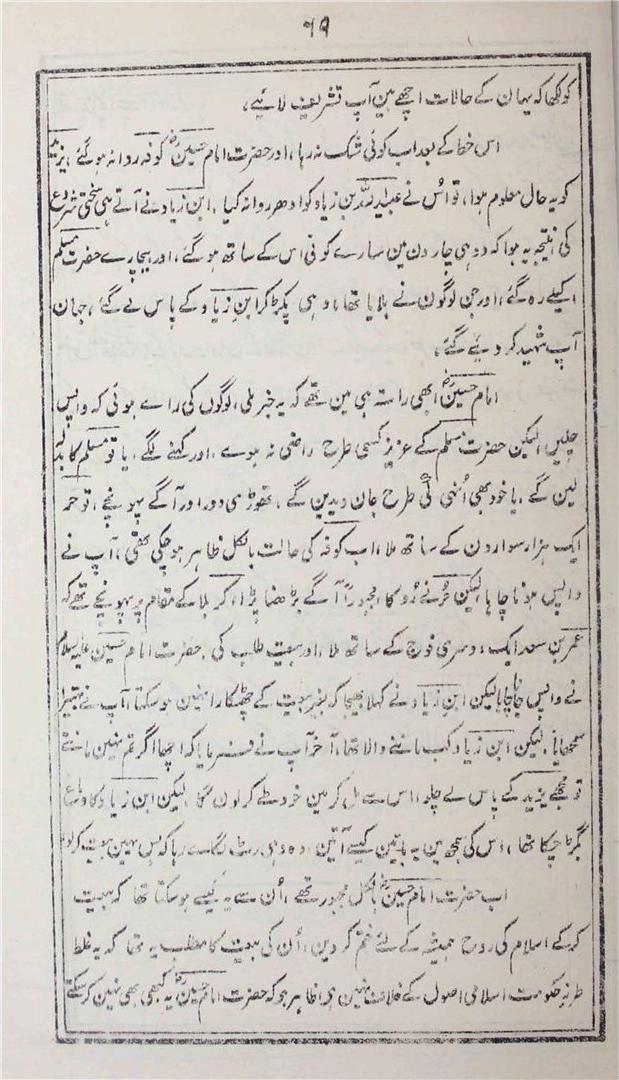 ۶۹
کو لکھا کہ یہان کے حالات اچھے ہین آپ تشریف لائیے،
اس خط کے بعد اب کوئی شک نہ رہا، اور حضرت امام حسینؓ کوفہ روانہ ہو گئے، یزید
کو یہ حال معلوم ہوا، تو اُس نے عبید اللہ بن زیاد کو ادھر روانہ کیا، ابن زیاد نے آتے ہی سختی شروع
کی نتیجہ یہ ہوا کہ دو ہی چار دن مین سارے کوفی اس کے ساتھ ہو گئے، اور بیچارے حضرت مسلم
اکیلے رہ گئے، اور جن لوگون نے بلایا تھا، وہی پکڑ کر ابن زیاد کے پاس لے گئے، جہان
آپ شہید کر دیئے گئے،
امام حسینؓ ابھی راستہ ہی مین تھے کہ یہ خبر ملی، لوگون کی راے ہوئی کہ واپس
چلین، لیکن حضرت مسلم کے عزیز کسی طرح راضی نہ ہوے، اور کہنے لگے، یا تو مسلم کا بدلہ
لین گے، یا خود بھی اُنہی کی طرح جان دیدین گے، تھوڑی دور اور آگے پہونچے، تو حر
ایک ہزار سوارون کے ساتھ ملا، اب کوفہ کی حالت بالکل ظاہر ہو چکی تھی، آپ نے
واپس ہونا چاہا، لیکن حُر نے رُوکا، مجبوراً آگے بڑھنا پڑا، کربلا کے مقام پر پہونچے تھے کہ
عمر بن سعد ایک دوسری فوج کے ساتھ ملا، اور بیعت طلب کی، حضرت امام حسین علیہ السلام
نے واپس جانا چاہا لیکن ابن زیاد نے کہلا بھیجا کہ بغیر بیعت کے چھٹکارا نہین ہو سکتا، آپ نے بہتیرا
سمجھایا، لیکن ابن زیاد کب ماننے والا تھا، آخر آپ نے فرمایا کہ اچھا اگر تم نہین مانتے
تو مجھے یزید کے پاس لے چلو، اس سے مل کر مین خود طے کر لون گا، لیکن ابن زیاد کا دماغ
بگڑ چکا تھا، اس کی سمجھ مین یہ باتین کیسے آتین، وہ وہی رٹ لگاے رہا کہ بس یہین بیعت کر لو
اب حضرت امام حسینؓ بالکل مجبور تھے، اُن سے یہ کیسے ہو سکتا تھا کہ بیعت
کر کے اسلام کی روح ہمیشہ کے لئے ختم کر دین، اُن کی بیعت کا مطلب یہ تھا کہ یہ غلط
طرز حکومت اسلامی اصول کے خلاف نہین ہو، ظاہر ہو کہ حضرت امام حسینؓ یہ کبھی بھی نہین کر سکتے